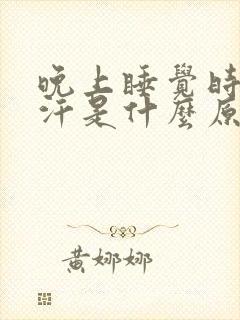 晚上睡覺時
汗是什麼原
黃娜娜